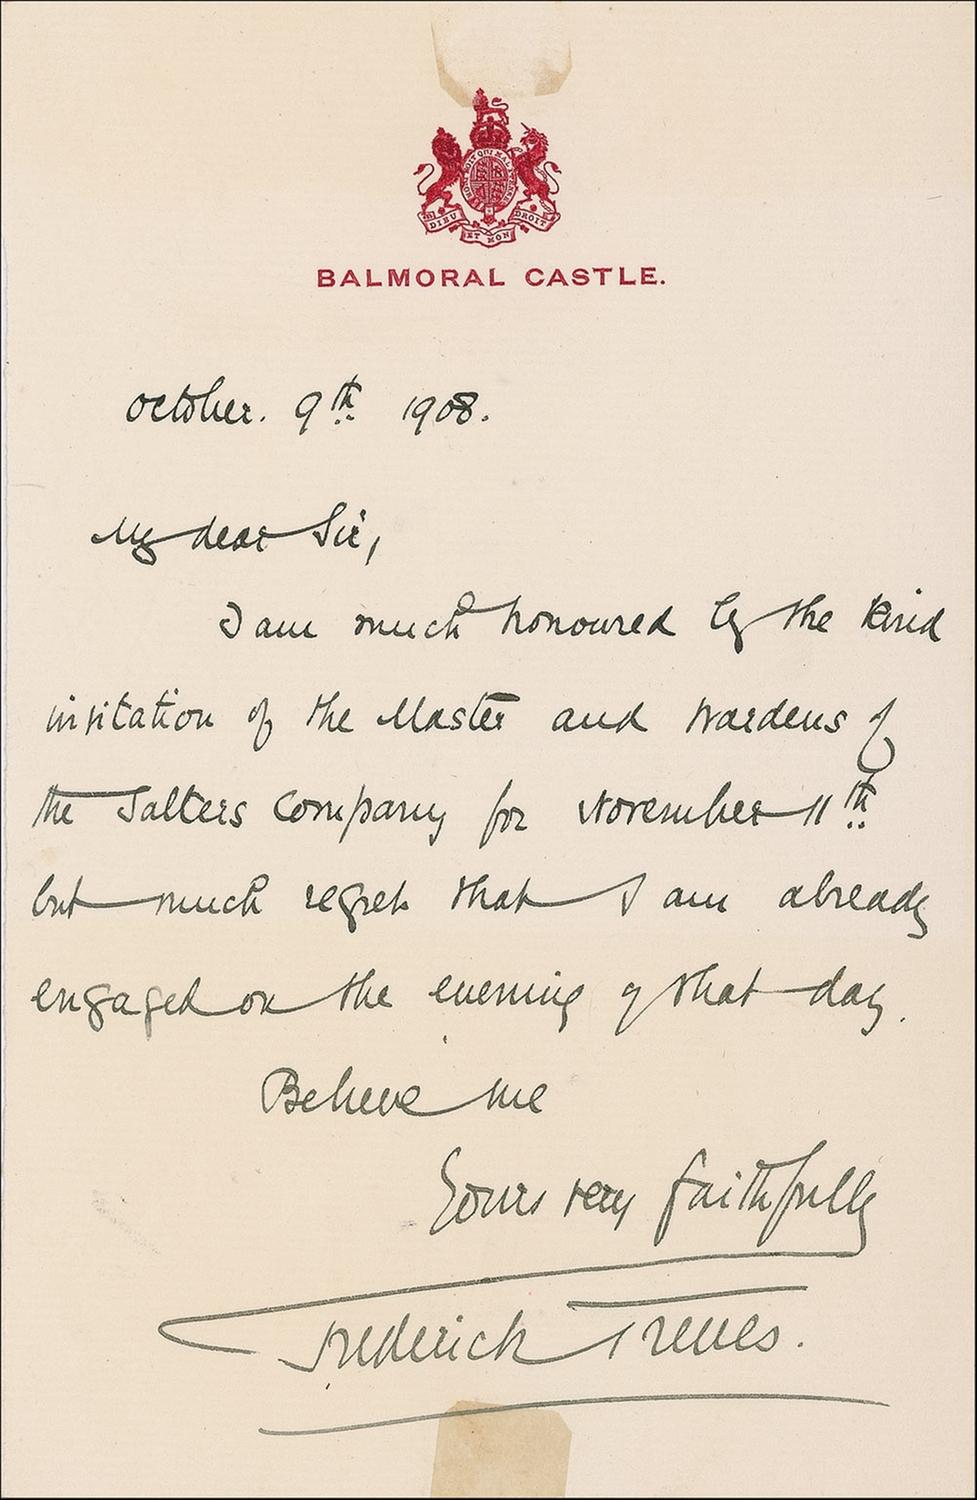 HONI SOIT QUI MAL Y PENSE
DIEU ET MON DROIT
BALMORAL CASTLE.
October. 9th 1908.
My dear Sir,
I am much honoured by the kind
invitation of the Master and Wardens of
the Salters Company for November 11th
but much regret that I am already
engaged on the evening of that day.
Believe me
Yours very faithfully
Frederick Treves.